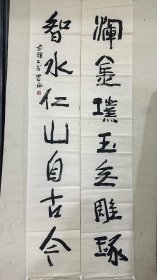 浑金璞玉无雕琢
智水仁山自古今